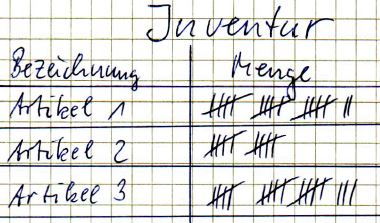 Inventur
Bezeichnung Menge
Artikel 1 𝍸 𝍸 𝍸 ||
Artikel 2 𝍸 𝍸
Artikel 3 𝍸 𝍸 𝍸 |||